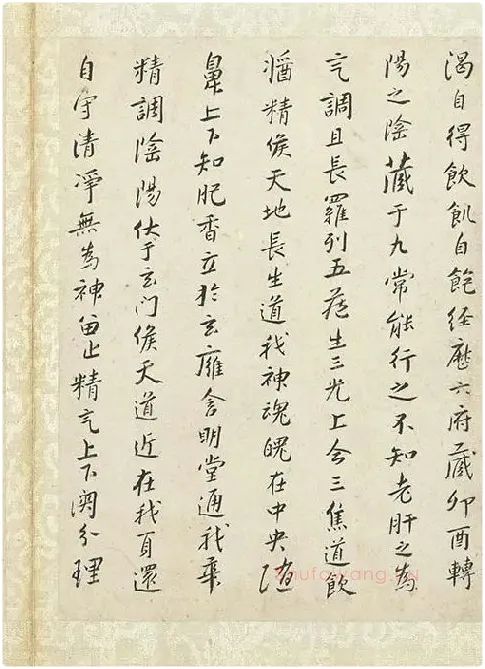 渴自得飲飢自飽経歷六府藏卯酉轉
陽之陰藏于九常能行之不知老肝之為
气調且長羅列五藏生三光上合三焦道飲
醬精候天地長生道我神魂魄在中央随
鼻上下知肥香立於玄廱含明堂通我華
精調陰陽伏于玄门候天道近在我身還
自守清淨無為神留止精气上下関分理